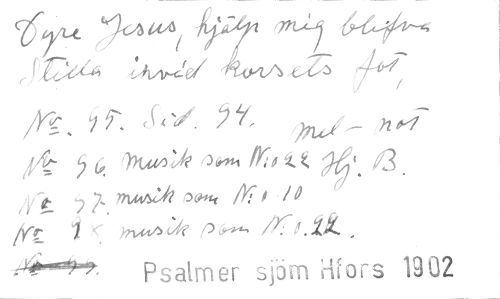 Dyre Jesus, hjälp mig blifva
Stilla invid korsets fot,
No. 95. Sid. 94.
mel – not
No 96. musik som N:o 22 Hj. B.
No 97. musik som N:o 10
No 98. musik som N:o 22.
No 99.
Psalmer sjöm Hfors 1902